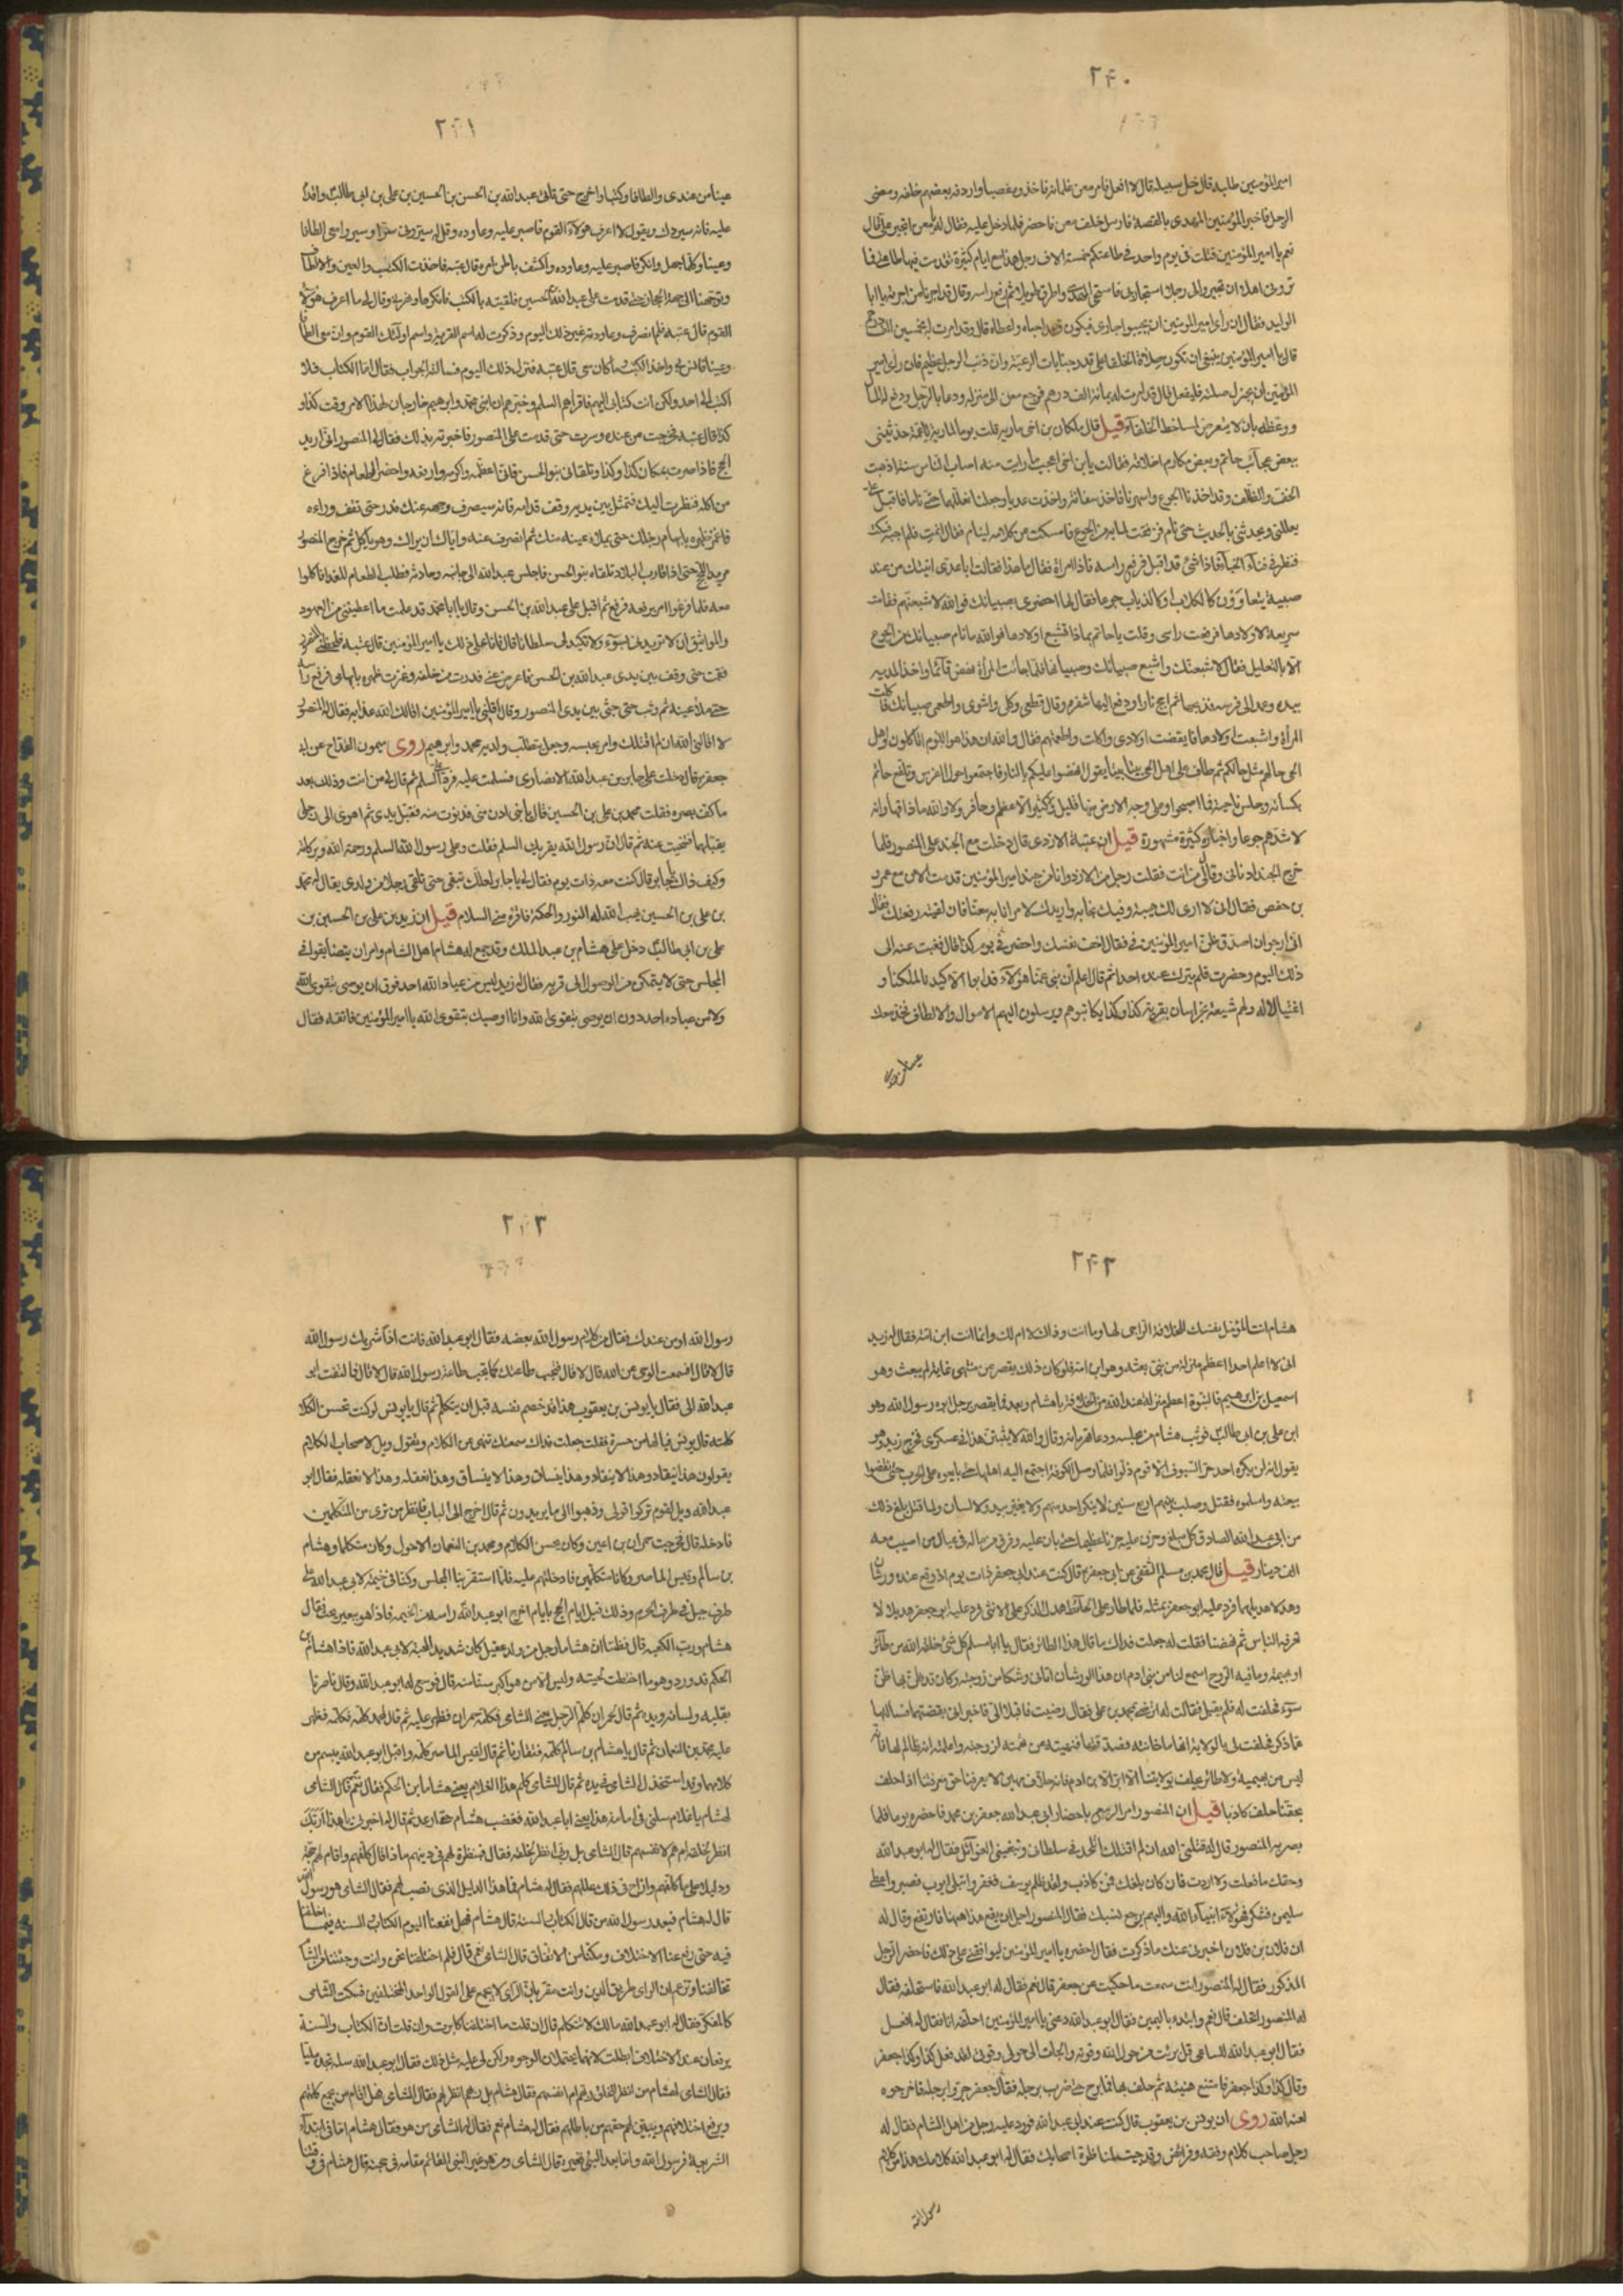 ٢٤٠
امير المؤمنين طلبه قال خل سبيله قال لا افعل فامر معن غلمانه فاخذوه غصبا واردفه بعضهم خلفه ومضى
الرجل فاخبر امير المؤمنين المهدى بالقصة فارسل خلف معن فاحضر فلما دخل عليه فقال له يا معن اتجير على قال
نعم يا امير المؤمنين قتلت فى يوم واحد فى طاعتكم خمسة الاف رجل هذا مع ايام كثيرة تقدمت فيها طاعتى فما
ترونى اهلا ان تجيروا لى رجلا استجار بى فاستحى المهدى واطرق طويلا ثم رفع راسه وقال قد اجرنا من اجرته يا ابا
الوليد فقال ان رأى امير المؤمنين ان يحبو جارى فيكون قد احياه واعطاه قال وقد امرت له بخمسين الف درهم
قال يا امير المؤمنين ينبغى ان تكون صلاة الخلفاء على قدر جنايات الرعية وان ذنب الرجل عظيم فان رأى امير
المؤمنين ان يجزل صلته فليفعل قال قد امرت له بمائة الف درهم فرجع معن الى منزله ودعا بالرجل ودفع له المال
ووعظه بان لا يتعرض لمساخط الخلفاء قيل قال ملكان بن اخى ماريه قلت يوما لماريه يا عمة حدثينى
ببعض عجائب حاتم وبعض مكارم اخلاقه فقالت يا بن اخى اعجب ما رايت منه اصاب الناس سنة اذهبت
الخف والظلف وقد اخذنا الجوع واسهرنا فاخذ سفانه واخذت عديا وجعلنا نعللهما حتى ناما فاقبل على
يعللنى ويحدثنى بالحديث حتى انام فرققت لما به من الجوع فامسكت من كلامه لينام فقال انمت فلم اجبه فسكت
فنظر فى فناء الخباء فاذا شئ قد اقبل فرفع راسه فاذا امراة فقال ما هذا فقالت يا ابا عدى اتيتك من عند
صبية يتعاوون كالكلاب او كالذياب جوعا فقال لها احضرى صبيانك فوالله لاشبعنهم فقامت
سريعة لاولادها فرفعت راسى وقلت يا حاتم بماذا تشبع اولادها فوالله ما نام صبيانك من الجوع
الا بالتعليل فقال لاشبعنك واشبع صبيانك وصبيانها فلما جائت المرأة نهض قائما واخذ المدية
بيده وعمد الى فرسه فذبحها ثم اجج نارا ودفع اليها شفرة وقال قطعى وكلى واشوى واطعمى صبيانك فاكلت
المرأة واشبعت اولادها فايقضت اولادى واكلت واطعمتهم فقال والله ان هذا هو اللوم تاكلون واهل
الحى حالهم مثل حالكم ثم طاف على اهل الحى بيتا بيتا يقول انهضوا عليكم بالنار فاجتمعوا حول الفرس وتقنع حاتم
بكسائه وجلس ناحية فما اصبحوا وعلى وجه الارض منها قليل ولا كثير الا عظم وحافر ولا والله ما ذاقها وانه
لاشدهم جوعا واخباره كثيرة مشهورة قيل ان عتبة الازدى قال دخلت مع الجند على المنصور فلما
خرج الجند ادنانى وقال لى من انت فقلت رجل من الازد وانا من جند امير المؤمنين قدمت الان مع عمر
بن حفص فقال انى لارى لك هيبة وفيك نجابة واريدك لامر انا به معنّا فان لقيته رفعتك فقال
انى ارجو ان اصدق ظن امير المؤمنين فى فقال اخف نفسك واحضر فى يوم كذا قال فغبت عنه الى
ذلك اليوم وحضرت فلم يترك عنده احدا ثم قال اعلم ان بنى عمنا هؤلاء قد ابوا الا كيدنا لملكنا و
اغتيالا له ولهم شيعة بخراسان بقرية كذا وكذا يكاتبوهم ويرسلون اليهم الاموال والالطاف فخذ معك
٢٤١
عينا من عندى والطافا وكتبا واخرج حتى تاتى عبدالله بن الحسن بن الحسين بن على بن ابى طالب
عليه فانه سيردك ويقول لا اعرف هؤلاء القوم فاصبر عليه وعاوده وقل له سيرونى سرا وسيروا معى الطافا
وعينا وكلما جهل وانكر فاصبر عليه وعاوده واكشف باطن امره قال عتبه فاخذت الكتب والعين والالطاف
وتوجهنا الى جهة الحجاز حتى قدمت على عبدالله بن الحسين فلقيته بالكتب فانكرها وقال لى ما اعرف هؤلاء
القوم قال عتبه فلم انصرف وعاودته غير ذلك اليوم وذكرت له اسم القرية واسم اولئك القوم وان معى الطافا
وعينا فانس بى واخذ الكتب وما كان معى قال عتبه فتركت ذلك اليوم فسالته الجواب فقال اما الكتاب فلا
اكتب الى احد ولكن انت كتابى اليهم فاقرأهم السلم وخبرهم ان ابنى محمد وابرهيم خارجان لهذا الامر وقت كذا و
كذا قال عتبه فخرجت من عنده وسرت حتى قدمت على المنصور فاخبرته بذلك فقال لى المنصور انى اريد
الحج فاذا صرت بمكان كذا وكذا وتلقانى بنو الحسن فانى اعظمه واكرمه وارفعه واحضر الطعام فاذا فرغ
من اكله فنظرت اليك فتمثل بين يديه وقف قدامه فانه سيصرف وجهه عنك فدر حتى تقف وراءه
فاغمز ظهره بابهام رجلك حتى يملأ عينه منك ثم انصرف عنه واياك ان يراك وهو يأكل ثم خرج المنصور
مريد الحج حتى اذا قارب البلاد تلقاه بنو الحسن فاجلس عبدالله الى جانبه وحادثه فطلب الطعام للغدا فاكلوا
معه فلما فرغوا امر برفعه فرفع ثم اقبل على عبدالله بن الحسن وقال يا ابا محمد قد علمت ما اعطيتنى من العهود
والمواثيق ان لا تريد لى بسوء ولا تكيد لى سلطانا قال فانا على ذلك يا امير المؤمنين قال عتبه فلحظنى المنصور
فقمت حتى وقفت بين يدى عبدالله بن الحسن فاعرض عنى فدرت من خلفه وغمزت ظهره بابهامى فرفع رأسه
حتى ملأ عينه ثم وثب حتى جثى بين يدى المنصور وقال اقلنى يا امير المؤمنين اقالك الله عذابه فقال له المنصور
لا اقالنى الله ان لم اقتلك وامر بحبسه وجعل يتطلب ولديه محمد وابرهيم روى ميمون القداح عن ابى
جعفر قال دخلت على جابر بن عبدالله الانصارى فسلمت عليه فرد على السلم ثم قال لى من انت وذلك بعد
ما كف بصره فقلت محمد بن على بن الحسين فقال يا بنى ادن منى فدنوت منه فقبل يدى ثم اهوى الى رجلى
يقبلها فتنحيت عنه ثم قال ان رسول الله يقريك السلم فقلت وعلى رسول الله السلم ورحمة الله وبركاته
وكيف ذاك يا جابر قال كنت معه ذات يوم فقال لى يا جابر لعلك تبقى حتى تلقى رجلا من ولدى يقال له محمد
بن على بن الحسين يهب الله له النور والحكمة فاقرئه منى السلام قيل ان زيد بن على بن الحسين بن
على بن ابى طالب دخل على هشام بن عبد الملك وقد جمع له هشام اهل الشام وامر ان يتضايقوا فى
المجلس حتى لا يتمكن من الوصول الى قربه فقال له زيد ليس من عباد الله احد فوق ان يوصى بتقوى الله
ولا من عباده احد دون ان يوصى بتقوى الله وانا اوصيك بتقوى الله يا امير المؤمنين فاتقه فقال
٢٤٢
هشام انت المؤهل نفسك للخلافة الراجى لها وما انت وذاك لا ام لك وانما انت ابن امة فقال له زيد
انى لا اعلم احدا اعظم منزلة من نبى بعثه وهو ابن امة فلو كان ذلك يقصر عن منتهى غاية لم يبعث وهو
اسمعيل بن ابرهيم فالنبوة اعظم منزلة عند الله من الخلافة يا هشام وبعد فما يقصر برجل ابوه رسول الله وهو
ابن على بن ابى طالب فوثب هشام من مجلسه ودعا قهرمانه وقال والله لا يبيتن هذا فى عسكرى فخرج زيد وهو
يقول انه لن يكره احد حر السيوف الا قوم ذلوا فلما وصل الكوفة اجتمع اليه اهلها حتى بايعوه على الحرب حتى نقضوا
بيعته واسلموه فقتل وصلب بينهم اربع سنين لا ينكر احد منهم ولا يغير بيد ولا لسان ولما قتل بلغ ذلك
من ابى عبدالله الصادق كل مبلغ وحزن عليه حزنا عظيما حتى بان عليه وفرق من ماله فى عيال من اصيب معه
الف دينار قيل قال محمد بن مسلم الثقفى عن ابى جعفر قال كنت عند ابى جعفر ذات يوم اذ وقع عنده ورشان
وهدلا هديلهما فرد عليه ابو جعفر بمثله فلما طار على الحائط هدل الذكر على الانثى فرد عليه ابو جعفر هديلا لا
تعرفه الناس ثم نهضنا فقلت له جعلت فداك ما قال هذا الطائر فقال يا ابا مسلم كل شئ خلقه الله من طائر
او بهيمة وما فيه الروح اسمع لنا من بنى ادم ان هذا الورشان اتانى وشكا من زوجته وكان قد ظن بها ظن
سوء فحلفت له فلم يقبل فقالت له ارضى بمحمد بن على فقال رضيت فاقبلا الى فاخبرانى بقضتهما فسالتها
عما ذكر فحلفت لى بالولاية انها ما خانته فصدقتها فنهيته عن تهمته لزوجته واعلمته انه ظالم لها فانه
ليس من بهيمة ولا طائر يحلف بولايتنا الا ابر الا بن ادم فانه حلاف مهين لا يعرفنا حق معرفتنا اذا حلف
بحقنا حلف كاذبا قيل ان المنصور امر الربيع باحضار ابى عبدالله جعفر بن محمد فاحضره يوما فلما
بصر به المنصور قال له قتلنى الله ان لم اقتلك اتلحد فى سلطانى وتبتغينى الغوائل فقال له ابو عبدالله
وحقك ما فعلت ولا اردت فان كان بلغك فمن كاذب ولقد ظلم يوسف فغفر وابتلى ايوب فصبر واعطى
سليمن فشكر فهؤلاء انبياء الله واليهم يرجع نسبك فقال المنصور اجل ارتفع هاهنا فارتفع وقال له
ان فلان بن فلان اخبرنى عنك ما ذكرت فقال احضره يا امير المؤمنين ليوافقنى على ذلك فاحضر الرجل
المذكور فقال له المنصور انت سمعت ما حكيت عن جعفر قال نعم فقال له ابو عبدالله فاستحلفه فقال
له المنصور اتحلف قال نعم وابتدء باليمين فقال ابو عبدالله دعنى يا امير المؤمنين احلفه انا فقال له افعل
فقال ابو عبدالله للساعى قل برئت من حول الله وقوته والجات الى حولى وقوتى لقد فعل كذا وكذا جعفر
وقال كذا وكذا جعفر فامتنع هنيئة ثم حلف بها فما برح حتى ضرب برجله فقال جعفر جروا برجله فاخرجوه
لعنه الله روى ان يونس بن يعقوب قال كنت عند ابى عبدالله فورد عليه رجل من اهل الشام فقال له
رجل صاحب كلام وفقه وفرائض وقد جئت لمناظرة اصحابك فقال له ابو عبدالله كلامك هذا من كلام
رسول الله
٢٤٣
رسول الله او من عندك فقال من كلام رسول الله بعضه فقال ابو عبدالله فانت اذا شريك رسول الله
قال لا قال افسمعت الوحى عن الله قال لا قال فتجب طاعتك كما تجب طاعة رسول الله قال لا قال فالتفت ابو
عبدالله الى فقال يا يونس بن يعقوب هذا قد خصم نفسه قبل ان يتكلم ثم قال يا يونس لو كنت تحسن الكلام
كلمته قال يونس فيا لها من حسرة فقلت جعلت فداك سمعتك تنهى عن الكلام وتقول ويل لاصحاب الكلام
يقولون هذا ينقاد وهذا لا ينقاد وهذا ينساق وهذا لا ينساق وهذا نعقله وهذا لا نعقله فقال ابو
عبدالله ويل لقوم تركوا قولى وذهبوا الى ما يريدون ثم قال اخرج الى الباب فانظر من ترى من المتكلمين
فادخله قال فخرجت حمران بن اعين وكان يحسن الكلام ومحمد بن النعمان الاحول وكان متكلما وهشام
بن سالم وقيس الماصر وكانا متكلمين فادخلتهم عليه فلما استقر بنا المجلس وكنا فى خيمة لابى عبدالله على
طرف جبل فى طرف الحرم وذلك قبل ايام الحج بايام اخرج ابو عبدالله راسه من الخيمة فاذا هو ببعير يخب فقال
هشام ورب الكعبه قال فظننا ان هشاما رجل من ولد عقيل كان شديد المحبة لابى عبدالله فاذا هشام بن
الحكم قد ورد وهو ما اختطت لحيته وليس الا من هو اكبر سنا منه قال فوسع له ابو عبدالله وقال ناصرنا
بقلبه ولسانه ويده ثم قال لحمران كلم الرجل يعنى الشامى فكلمه حمران فظهر عليه ثم قال لمحمد كلمه فكلمه فظهر
عليه محمد بن النعمان ثم قال يا هشام بن سالم كلمه فتعارفا ثم قال لقيس الماصر كلمه واقبل ابو عبدالله يبسم من
كلامهما وقد استخذل الشامى فى يده ثم قال للشامى كلم هذا الغلام يعنى هشاما ابن الحكم فقال نعم ثم قال الشامى
لهشام يا غلام سلنى فى امامة هذا يعنى ابا عبدالله فغضب هشام حتى ارعد ثم قال له اخبرنى يا هذا اربك
انظر لخلقه ام هم لانفسهم قال الشامى بل ربى انظر لخلقه فقال فبنظره لهم فى دينهم ماذا قال كلفهم واقام لهم حجة
ودليلا على ما كلفهم وازاح فى ذلك عللهم فقال له هشام فما هذا الدليل الذى نصب لهم فقال الشامى هو رسول الله
قال له هشام فبعد رسول الله من قال الكتاب والسنة قال هشام فهل نفعنا اليوم الكتاب والسنه فيما اختلفنا
فيه حتى رفع عنا الاختلاف ومكننا من الاتفاق قال الشامى نعم قال فلم اختلفنا نحن وانت وجئتنا من الشام
تخالفنا وتزعم ان الراى طريق الدين وانت مقر بان الراى لا يجمع على القول الواحد المختلفين فسكت الشامى
كالمفكر فقال له ابو عبدالله مالك لا تتكلم قال ان قلت ما اختلفنا كابرت وان قلت ان الكتاب والسنة
يرفعان عنا الاختلاف ابطلت لانهما يحتملان الوجوه ولكن لى عليه مثل ذلك فقال ابو عبدالله سله تجده مليا
فقال الشامى لهشام من انظر للخلق ربهم ام انفسهم فقال هشام بل ربهم انظر لهم فقال الشامى فهل اقام من يجمع كلمتهم
ويرفع اختلافهم ويبين لهم حقهم من باطلهم فقال له هشام نعم فقال له الشامى من هو فقال هشام اما فى ابتداء
الشريعة فرسول الله واما بعد النبى فغيره قال الشامى ومن هو غير النبى القائم مقامه فى حجته قال هشام فى وقتنا